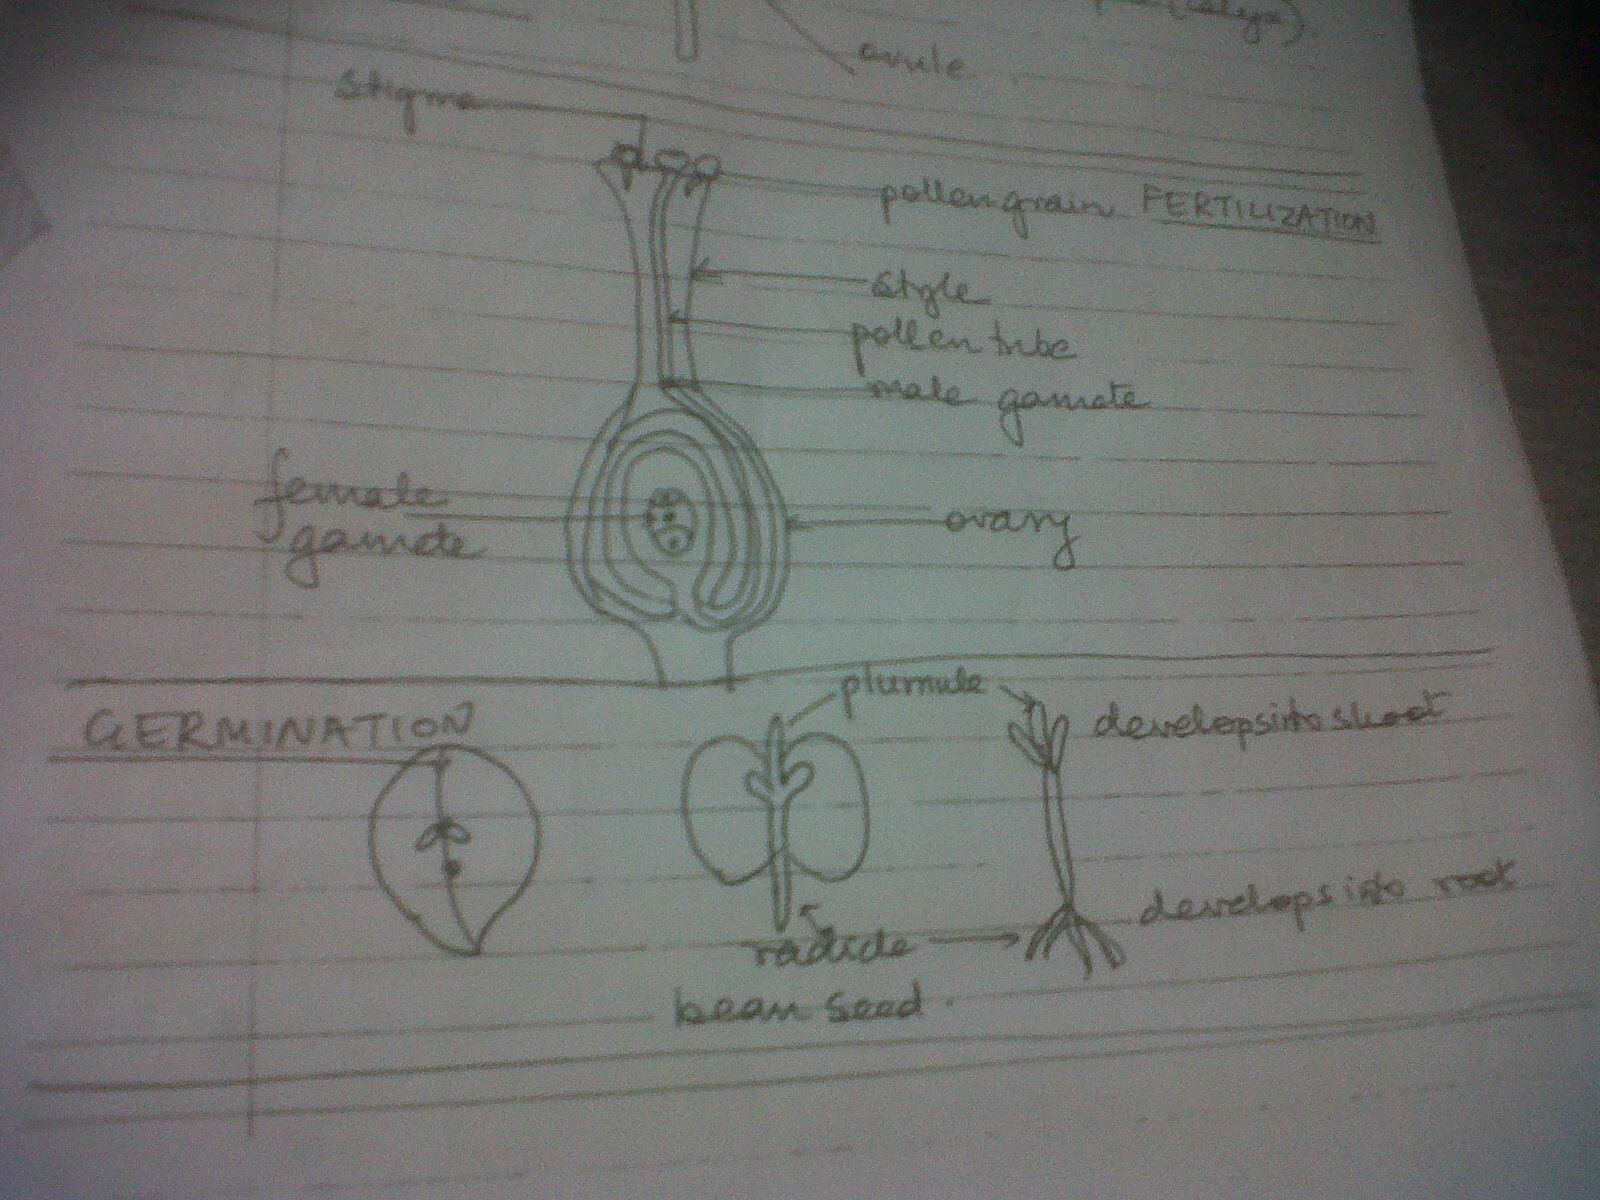 (calyx).
ovule
stigma
pollengrain FERTILIZATION
style
pollen tube
male gamete
female
gamete
ovary
plumule
GERMINATION
develops into shoot
develops into root
radicle
bean seed.